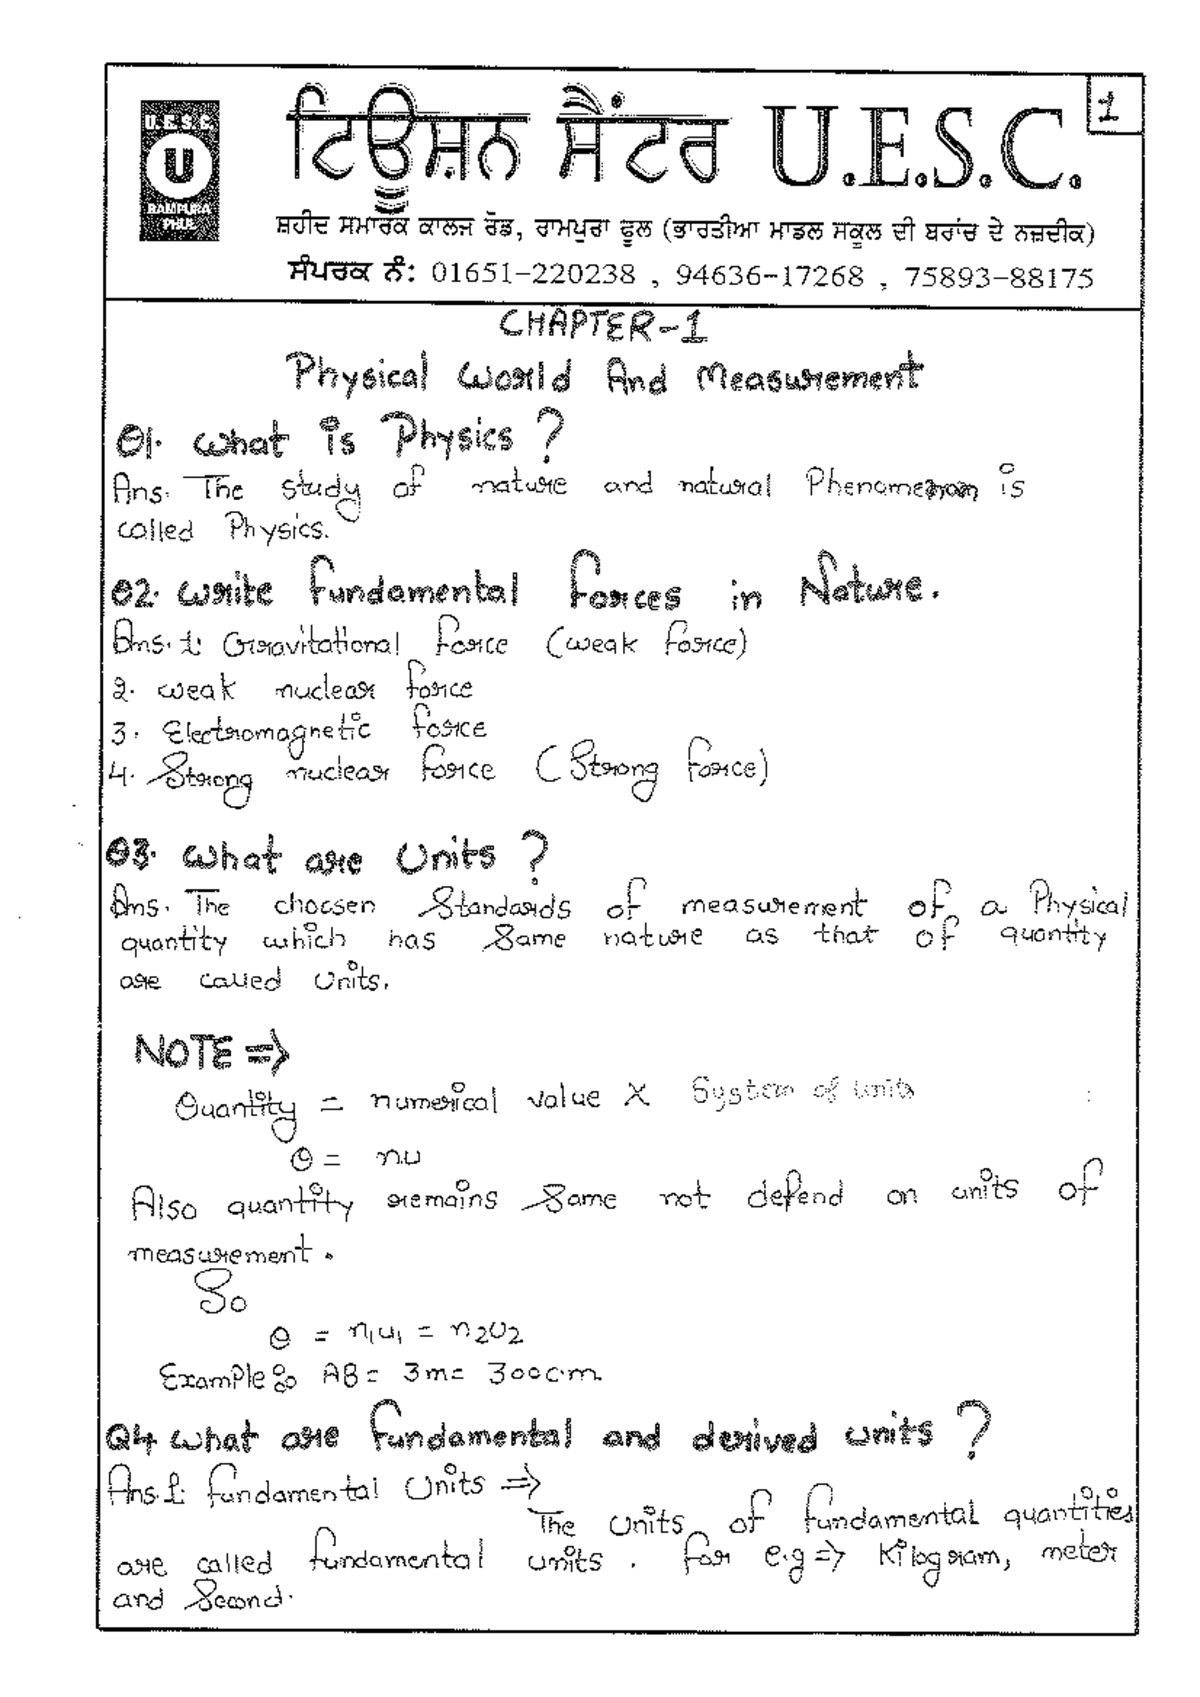 1
U.E.S.C.
U
RAMPURA
PHUL
ਟਿਊਸ਼ਨ ਸੈਂਟਰ U.E.S.C.
ਸ਼ਹੀਦ ਸਮਾਰਕ ਕਾਲਜ ਰੋਡ, ਰਾਮਪੁਰਾ ਫੂਲ (ਭਾਰਤੀਆ ਮਾਡਲ ਸਕੂਲ ਦੀ ਬਰਾਂਚ ਦੇ ਨਜ਼ਦੀਕ)
ਸੰਪਰਕ ਨੰ: 01651-220238 , 94636-17268 , 75893-88175
CHAPTER-1
Physical World And Measurement
Q1. What is Physics ?
Ans. The study of nature and natural Phenomenon is
called Physics.
Q2. Write fundamental forces in Nature.
Ans. 1: Gravitational force (weak force)
2. weak nuclear force
3. Electromagnetic force
4. Strong nuclear force (Strong force)
Q3. What are Units ?
Ans. The choosen Standards of measurement of a Physical
quantity which has Same nature as that of quantity
are called Units.
NOTE ⇒
Quantity = numerical value X System of units
Q = nu
Also quantity remains Same not defend on units of
measurement.
So
Q = n₁u₁ = n₂u₂
Example: AB = 3m = 300cm.
Q4 What are fundamental and derived units ?
Ans.1: fundamental Units ⇒
The Units of fundamental quantities
are called fundamental units. for e.g ⇒ Kilogram, meter
and Second.